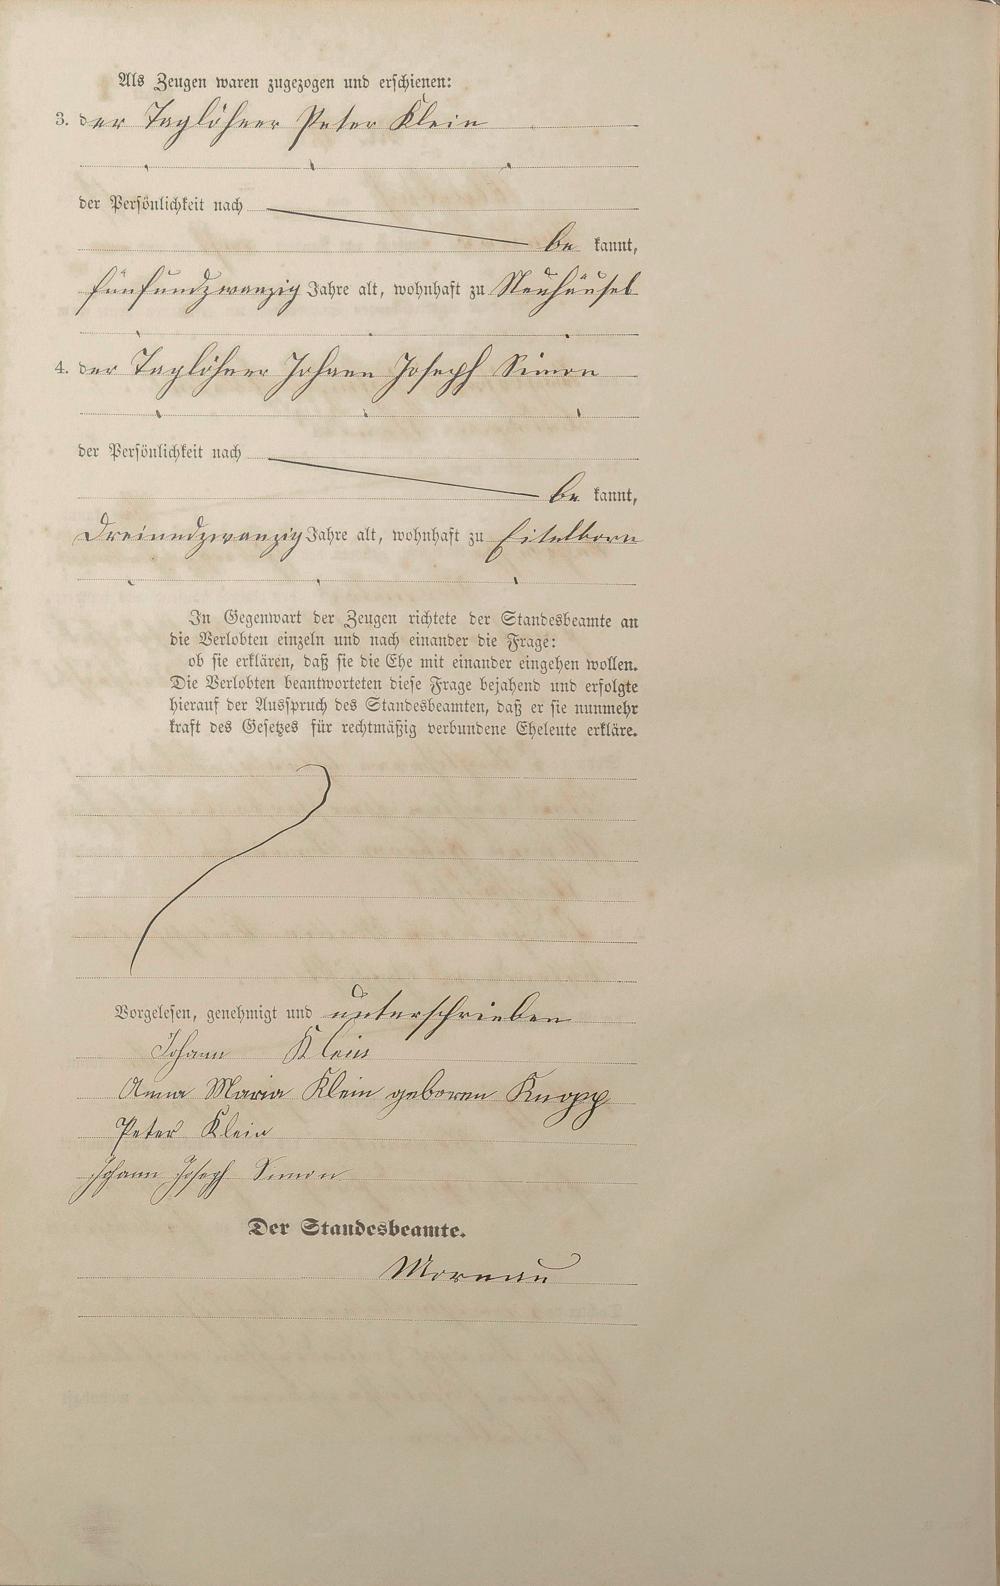 Als Zeugen waren zugezogen und erschienen:
3. der Taglöhner Peter Klein
der Persönlichkeit nach
be kannt,
fünfundzwanzig Jahre alt, wohnhaft zu Neuhäusel
4. der Taglöhner Johann Joseph Simon
der Persönlichkeit nach
be kannt,
dreiundzwanzig Jahre alt, wohnhaft zu Eitelborn
In Gegenwart der Zeugen richtete der Standesbeamte an
die Verlobten einzeln und nach einander die Frage:
ob sie erklären, daß sie die Ehe mit einander eingehen wollen.
Die Verlobten beantworteten diese Frage bejahend und erfolgte
hierauf der Ausspruch des Standesbeamten, daß er sie nunmehr
kraft des Gesetzes für rechtmäßig verbundene Eheleute erkläre.
Vorgelesen, genehmigt und unterschrieben
Johann Klein
Anna Maria Klein geboren Knopp
Peter Klein
Johann Joseph Simon
Der Standesbeamte.
Mornau